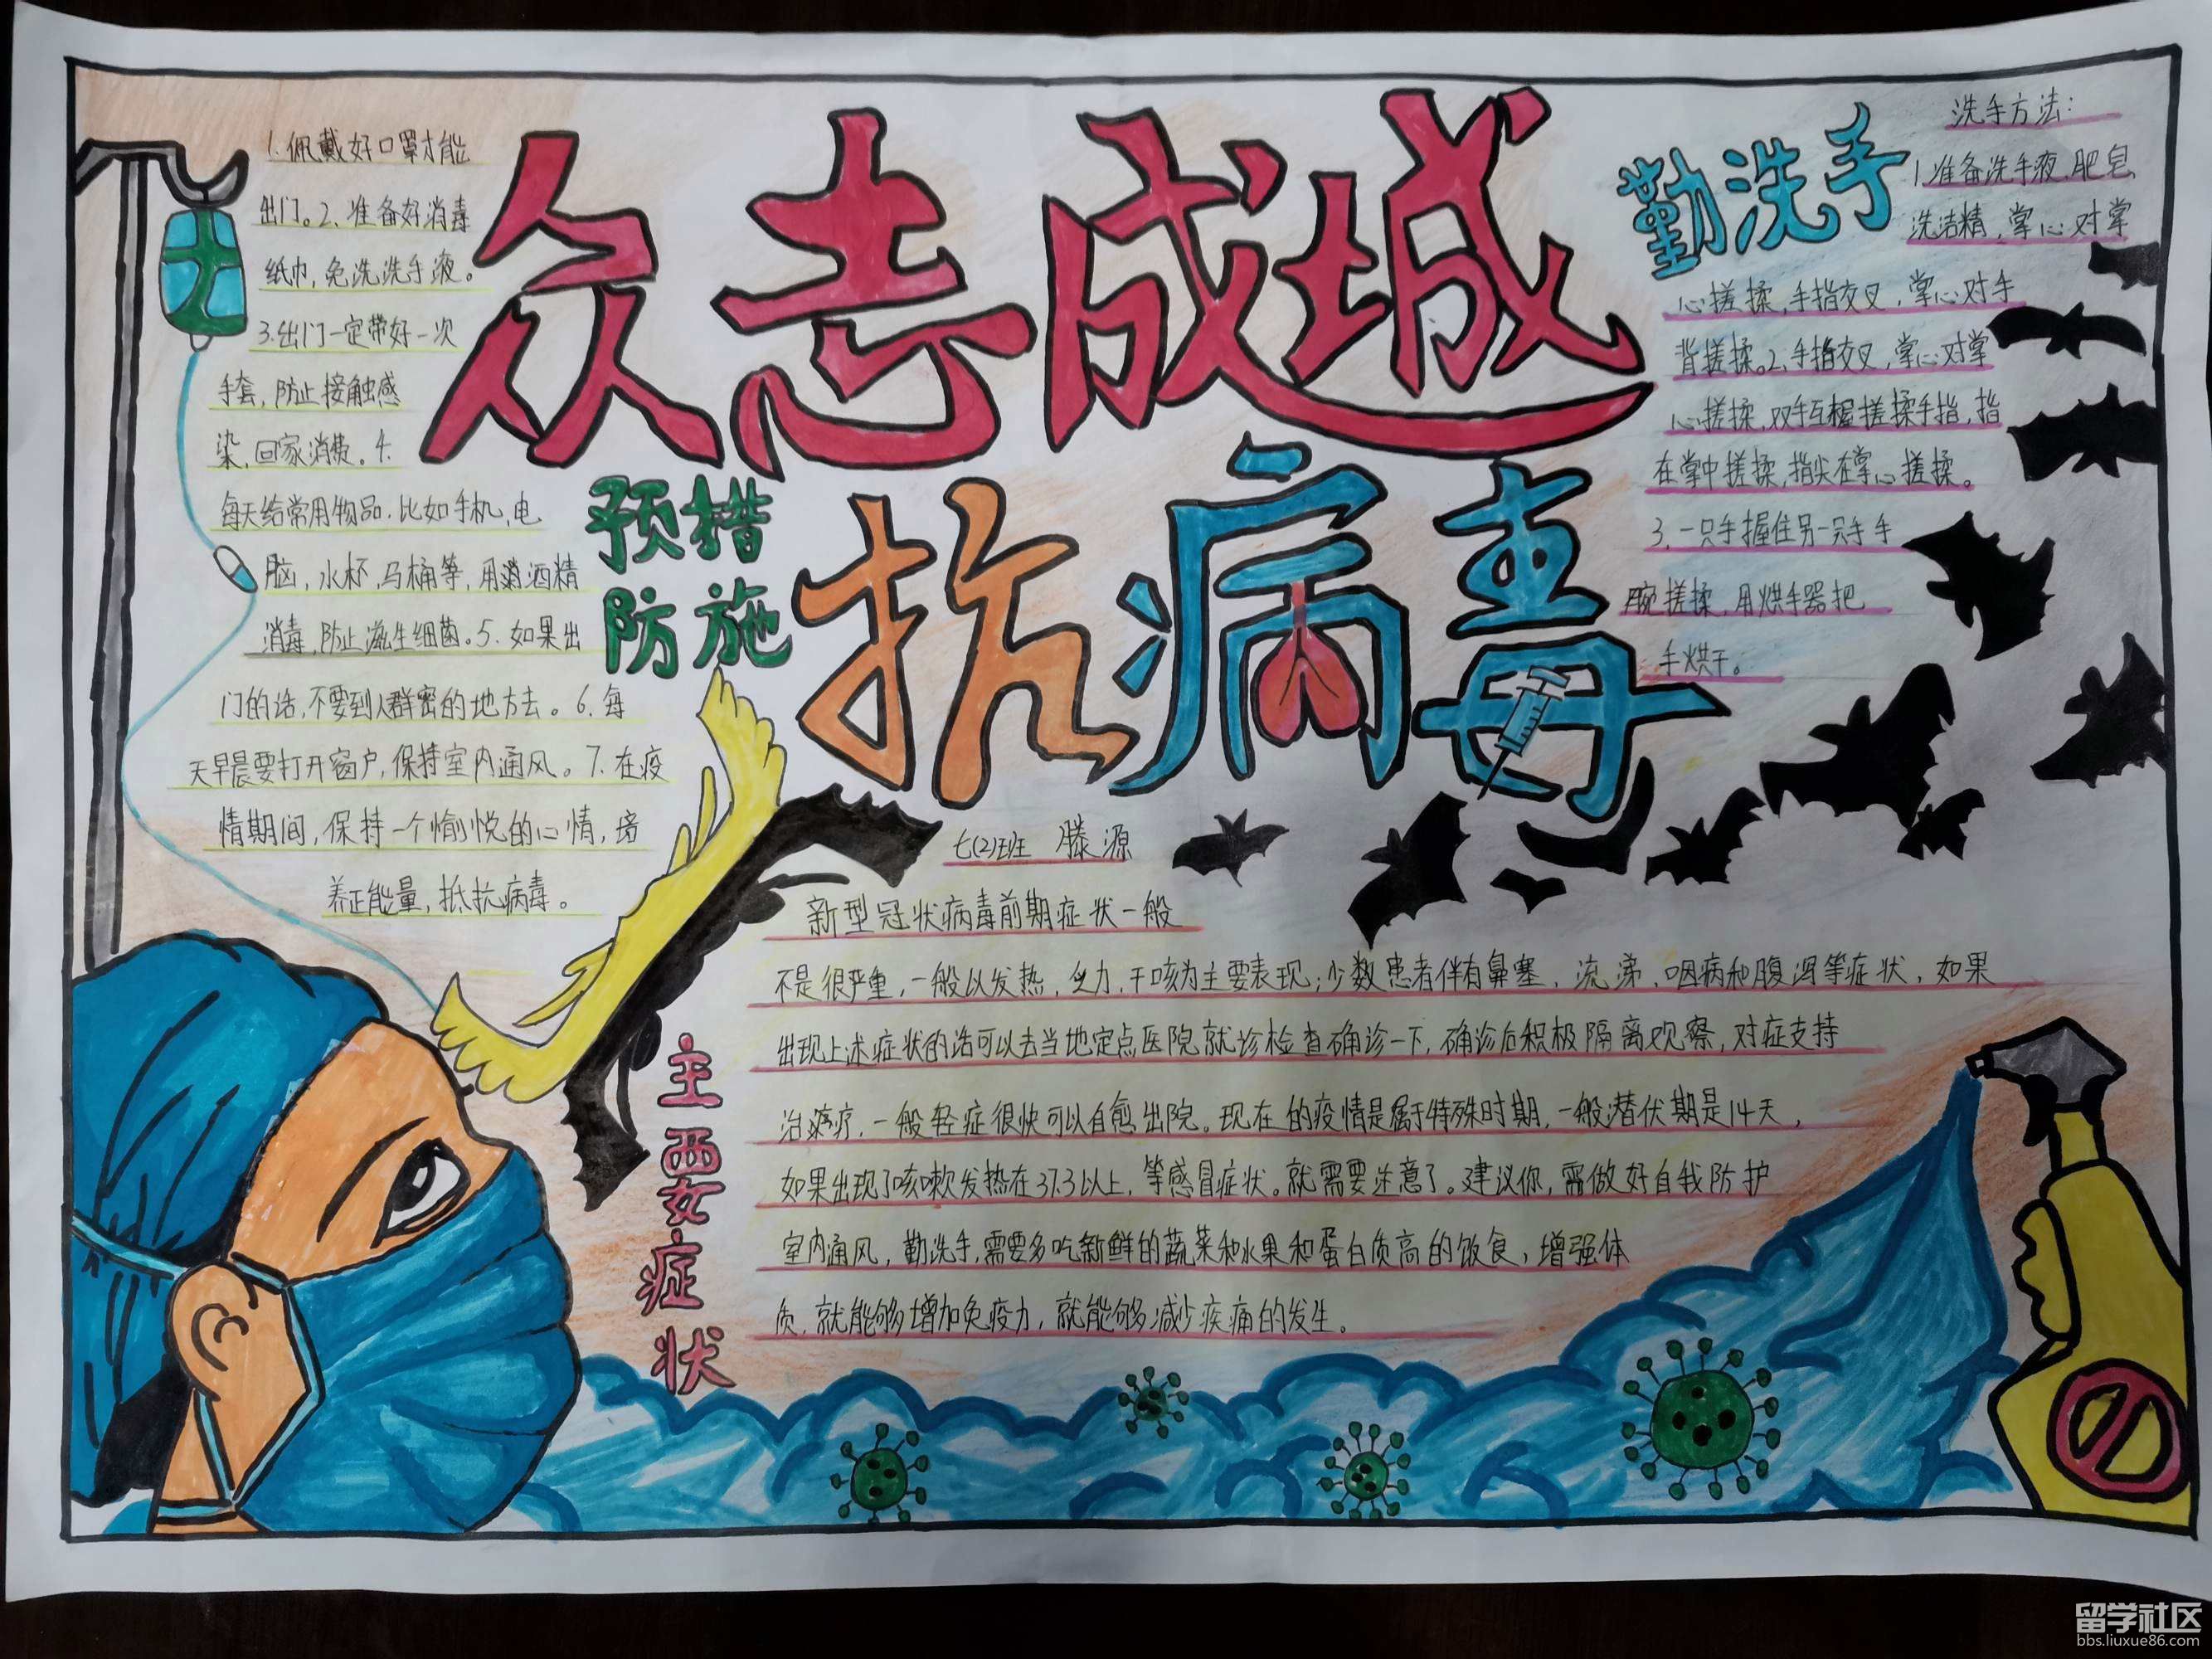 众志成城
抗病毒
预防
措施
1.佩戴好口罩才能
出门。2、准备好消毒
纸巾,免洗洗手液。
3.出门一定带好一次
手套,防止接触感
染,回家消费。4.
每天给常用物品.比如手机,电
脑,水杯,马桶等,用酒精
消毒,防止滋生细菌。5.如果出
门的话,不要到人群密的地方去。6.每
天早晨要打开窗户,保持室内通风。7.在疫
情期间,保持一个愉悦的心情,培
养正能量,抵抗病毒。
勤洗手
洗手方法:
1.准备洗手液.肥皂
洗洁精,掌心对掌
心搓揉,手指交叉,掌心对手
背搓揉。2、手指交叉,掌心对掌
心搓揉,双手互握搓揉手指,指
在掌中搓揉,指尖在掌心搓揉。
3.一只手握住另一只手手
腕搓揉,用烘手器把
手烘干。
七(2)班 滕源
主要症状
新型冠状病毒前期症状一般
不是很严重,一般以发热,乏力,干咳为主要表现;少数患者伴有鼻塞,流涕,咽病和腹泻等症状,如果
出现上述症状的话可以去当地定点医院就诊检查确诊一下,确诊后积极隔离观察,对症支持
治疗,一般轻症很快可以自愈出院。现在的疫情是属于特殊时期,一般潜伏期是14天,
如果出现了咳嗽发热在37.3以上,等感冒症状。就需要注意了。建议你,需做好自我防护
室内通风,勤洗手,需要多吃新鲜的蔬菜和水果和蛋白质高的饭食,增强体
质,就能够增加免疫力,就能够减少疾痛的发生。
留学社区
bbs.liuxue86.com